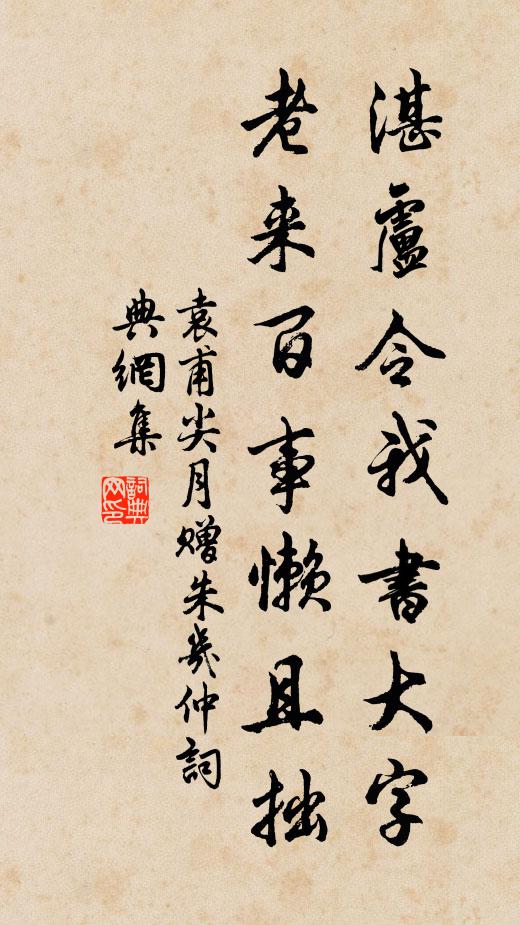 湛盧令我書大字
老来百事懒且拙
袁甫尖月赠朱幾仲詞
典網集
詞典网印